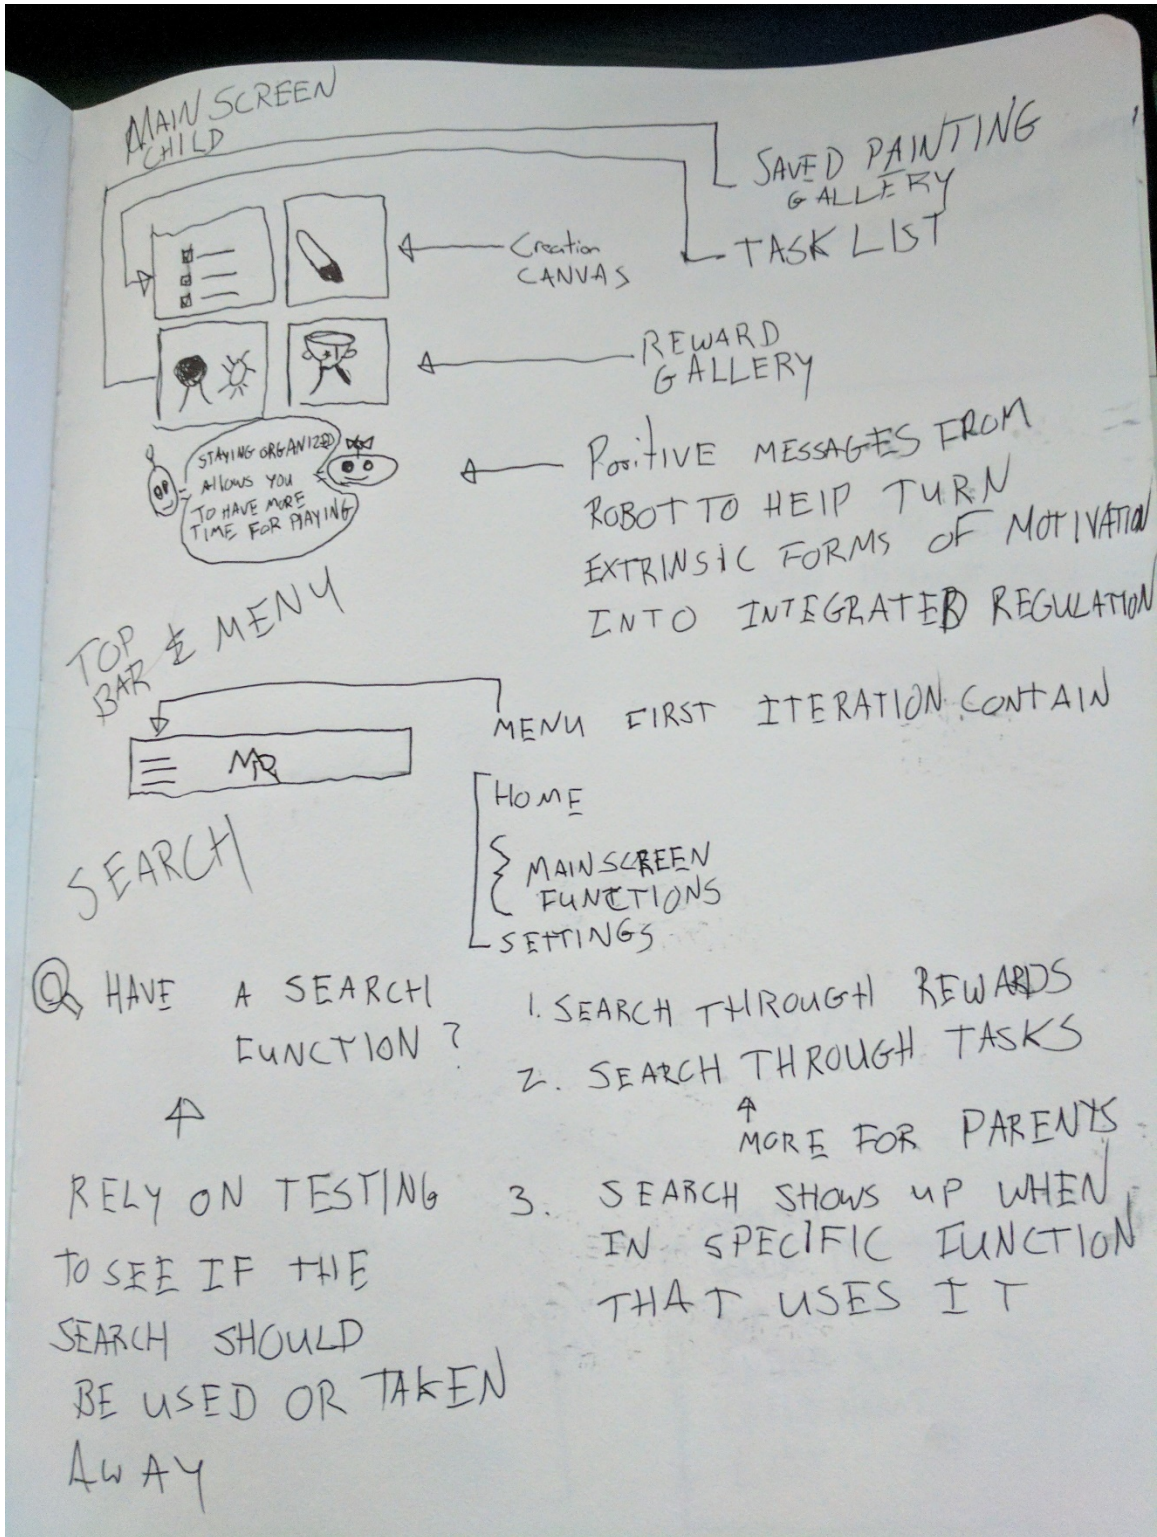 MAIN SCREEN
CHILD
SAVED PAINTING
GALLERY
TASK LIST
Creation
CANVAS
REWARD
GALLERY
STAYING ORGANIZED
Allows YOU
TO HAVE MORE
TIME FOR PLAYING
PositIVE MESSAGES FROM
ROBOT TO HElP TURN
EXTRINSiC FORMS OF MOTIVATION
INTO INTEGRATED REGULATION
TOP
BAR & MENY
MENU FIRST ITERATION CONTAIN
HOME
MAINSCREEN
FUNCTIONS
SETTINGS
SEARCH
HAVE A SEARCH
FUNCTION?
RELY ON TESTING
TO SEE IF THE
SEARCH SHOULD
BE USED OR TAKEN
AWAY
1. SEARCH THROUGH REWARDS
2. SEARCH THROUGH TASKS
MORE FOR PARENTS
3. SEARCH SHOWS UP WHEN
IN SPECIFIC FUNCTION
THAT USES IT